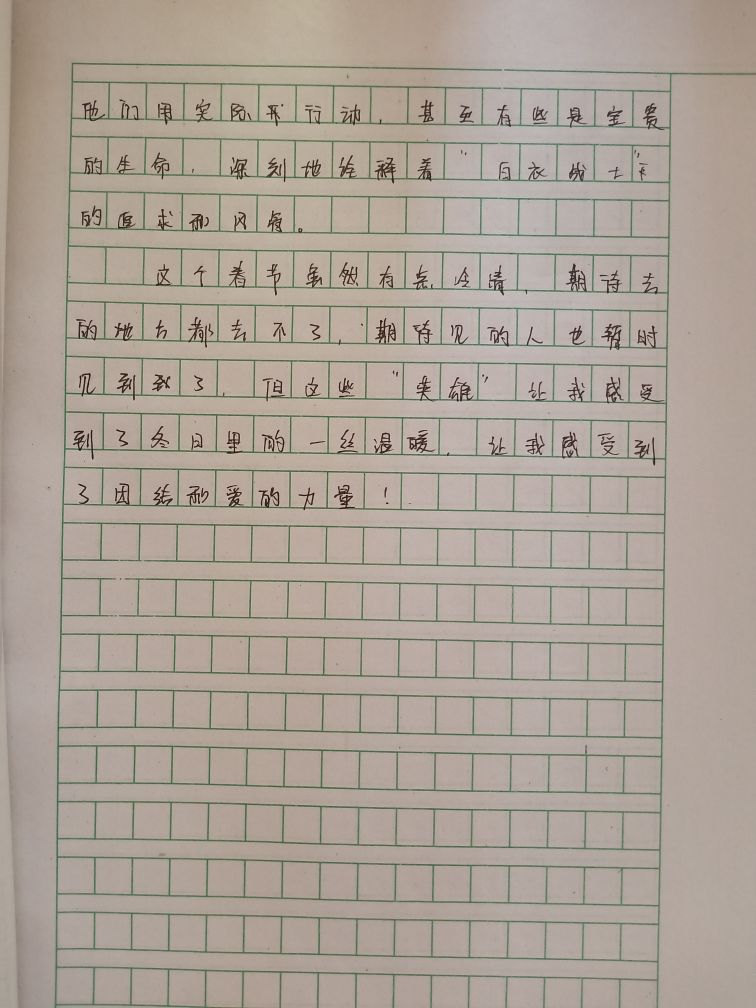 他们用实际形行动，甚至有些是宝贵
的生命，深刻地诠释着"白衣战士"
的追求和风骨。
这个春节虽然有点冷清，期待去
的地方都去不了，期待见的人也暂时
见到到了，但这些"英雄"让我感受
到了冬日里的一丝温暖，让我感受到
了团结和爱的力量！